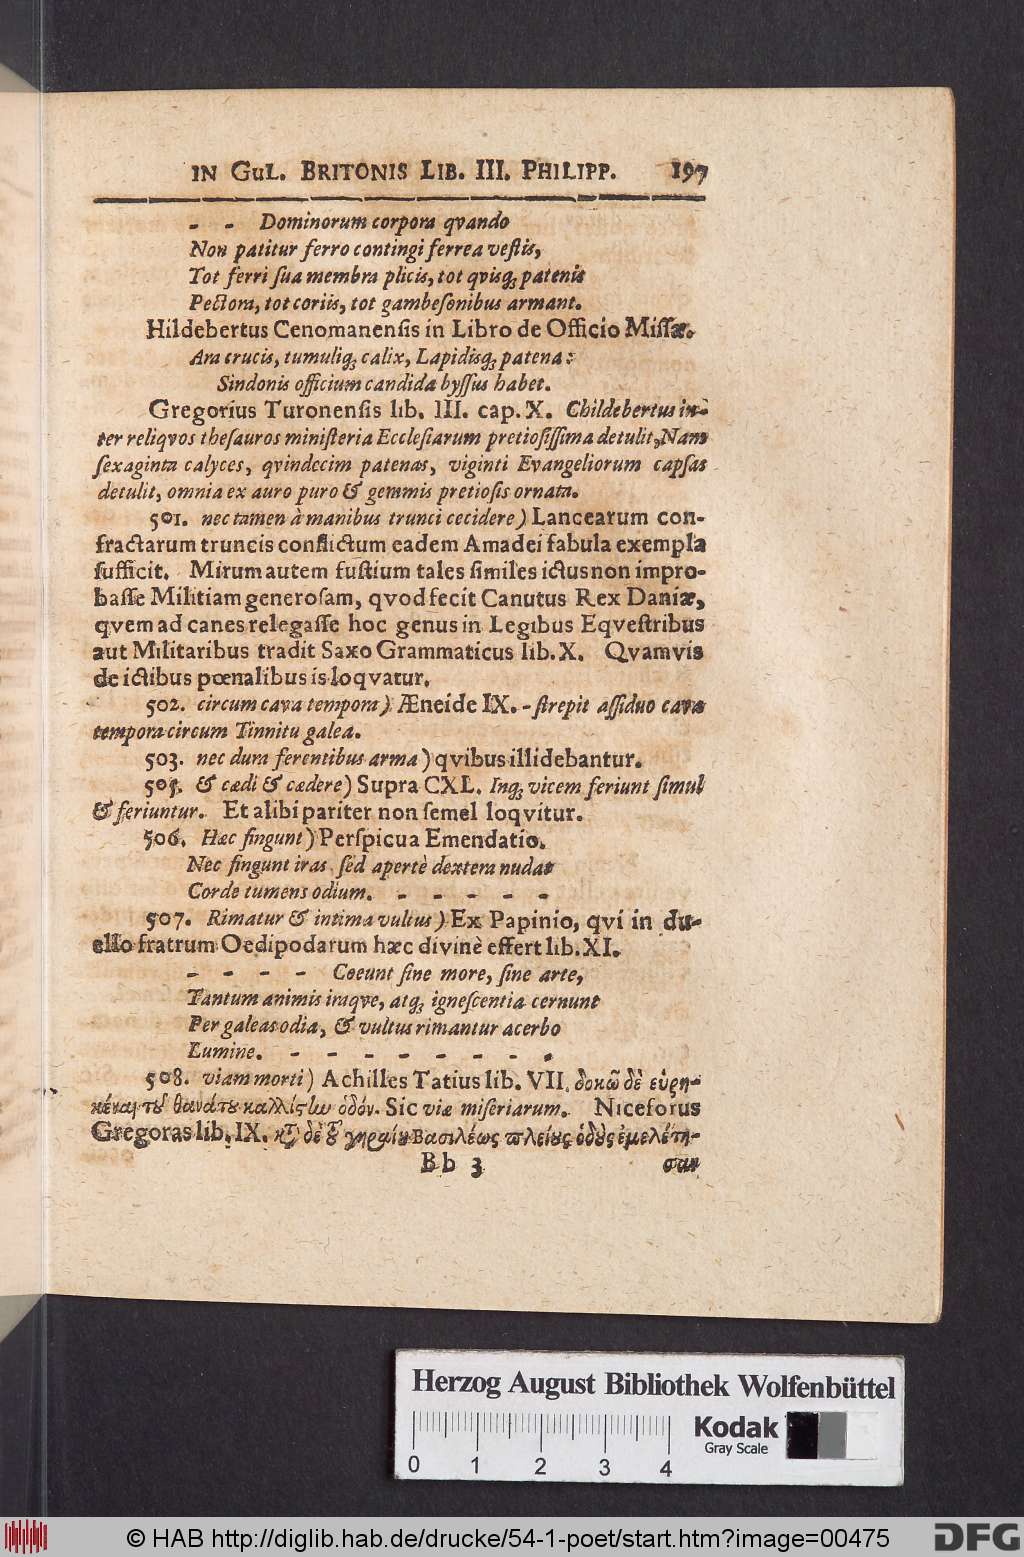 IN GUL. BRITONIS LIB. III. PHILIPP. 197
- - Dominorum corpora qvando
Non patitur ferro contingi ferrea veſtis,
Tot ferri ſua membra plicis, tot qvisq; patenis
Pectora, tot coriis, tot gambeſonibus armant.
Hildebertus Cenomanenſis in Libro de Officio Miſſæ.
Ara crucis, tumuliq; calix, Lapidisq; patena:
Sindonis officium candida byſſus habet.
Gregorius Turonenſis lib. III. cap. X. Childebertus in-
ter reliqvos theſauros miniſteria Eccleſiarum pretioſiſſima detulit, Nam
ſexaginta calyces, qvindecim patenas, viginti Evangeliorum capſas
detulit, omnia ex auro puro & gemmis pretioſis ornata.
501. nec tamen à manibus trunci cecidere) Lancearum con-
fractarum truncis conflictum eadem Amadei fabula exempla
ſufficit. Mirum autem fuſtium tales ſimiles ictus non impro-
baſſe Militiam generoſam, qvod fecit Canutus Rex Daniæ,
qvem ad canes relegaſſe hoc genus in Legibus Eqveſtribus
aut Militaribus tradit Saxo Grammaticus lib. X. Qvamvis
de ictibus pœnalibus is loqvatur.
502. circum cava tempora) Æneide IX. - ſtrepit aſſiduo cava
tempora circum Tinnitu galea.
503. nec dura ferentibus arma) qvibus illidebantur.
505. & cædi & cædere) Supra CXL. Inq; vicem feriunt ſimul
& feriuntur. Et alibi pariter non ſemel loqvitur.
506. Hæc fingunt) Perſpicua Emendatio.
Nec fingunt iras ſed apertè dextera nudat
Corde tumens odium. - - - - -
507. Rimatur & intima vultus) Ex Papinio, qvi in du-
ello fratrum Oedipodarum hæc divinè effert lib. XI.
- - - - Coeunt ſine more, ſine arte,
Tantum animis iraqve, atq; igneſcentia cernunt
Per galeas odia, & vultus rimantur acerbo
Lumine. - - - - - - - -
508. viam morti) Achilles Tatius lib. VII. δοκῶ δὲ εὑρη-
κέναι τοῦ θανάτου καλλίστην ὁδόν. Sic viæ miſeriarum. Niceforus
Gregoras lib. IX. κτ̃ δὲ τοῦ γηραίου Βασιλέως πλείους ὁδοὺς ἐμελέτη-
Bb 3 σαν
Herzog August Bibliothek Wolfenbüttel
Kodak
Gray Scale
0 1 2 3 4
© HAB http://diglib.hab.de/drucke/54-1-poet/start.htm?image=00475
DFG